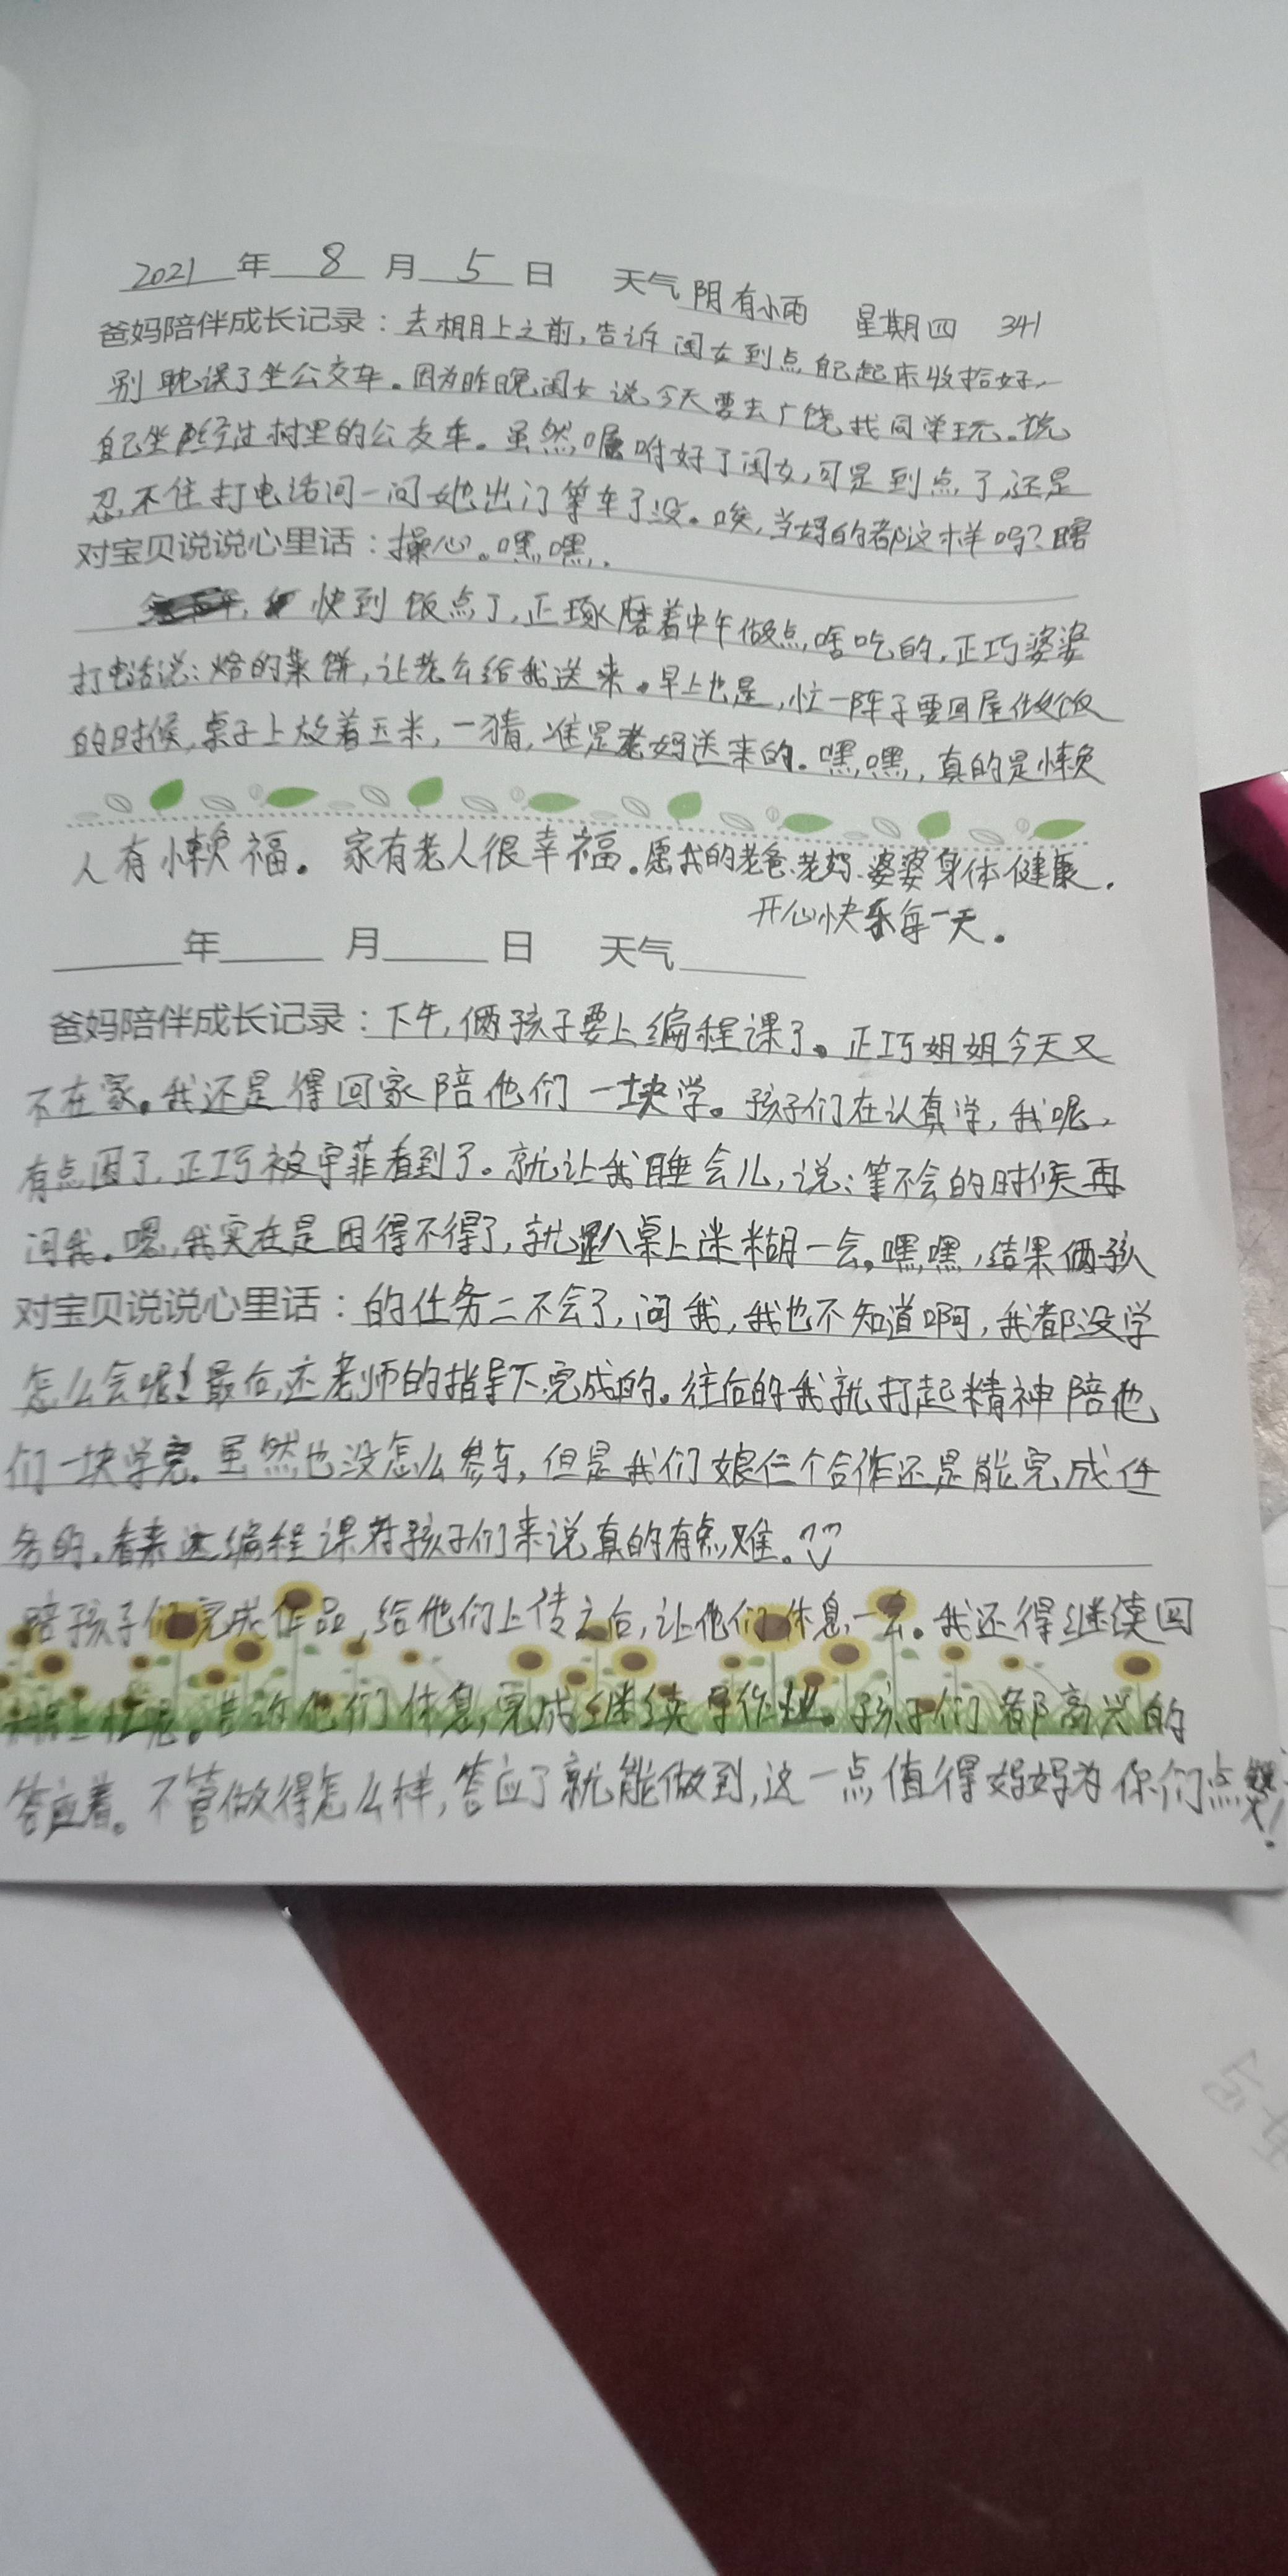 2021年8月5日 天气阴有小雨 星期四 341
爸妈陪伴成长记录：去棚上之前，告诉闺女到点自己起床收拾好，
别耽误了坐公交车。因为昨晚闺女说今天要去广饶找同学玩。说
自己坐路经过村里的公交车。虽然嘱咐好了闺女，可是到点了，还是
忍不住打电话问一问她出门等车了没。唉，当妈的都这样吗？瞎
对宝贝说说心里话：操心。嘿嘿。
快到饭点了，正琢磨着中午做点啥吃的，正巧婆婆
打电话说：烙的菜饼，让老公给我送来。早上也是，忙一阵子要回屋做饭
的时候，桌子上放着玉米，一猜，准是老妈送来的。嘿嘿，真的是懒
人有懒福。家有老人很幸福。愿我的老爸、老妈、婆婆身体健康。
开心快乐每一天。
年 月 日 天气
爸妈陪伴成长记录：下午，俩孩子要上编程课了。正巧姐姐今天又
不在家。我还是得回家陪他们一块学。孩子们在认真学，我呢，
有点困了，正巧被宇菲看到了。就让我睡会儿，说：等不会的时候再
问我。嗯，我实在是困得不得了，就趴桌上迷糊一会。嘿嘿，结果俩孩
对宝贝说说心里话：的任务二不会了，问我，我也不知道啊，我都没学
怎么会呢！最后，还老师的指导下完成的。往后的我就打起精神陪他
们一块学完。虽然也没怎么参与，但是我们娘仨个合作还是能完成任
务的。看来这编程课对孩子们来说真的有点难。
陪孩子们完成作品，给他们上传之后，让他们休息一会。我还得继续回
棚上忙呢。告诉他们休息完成继续写作业。孩子们都高兴的
答应着。不管做得怎么样，答应了就能做到，这一点值得妈妈为你们点赞！